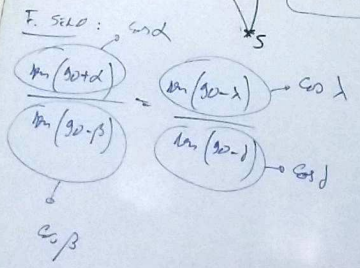 F. SENO: cos α
*S
sen(90+α) / sen(90-β) = sen(90-λ) / sen(90-δ)
cos λ
cos δ
cos β